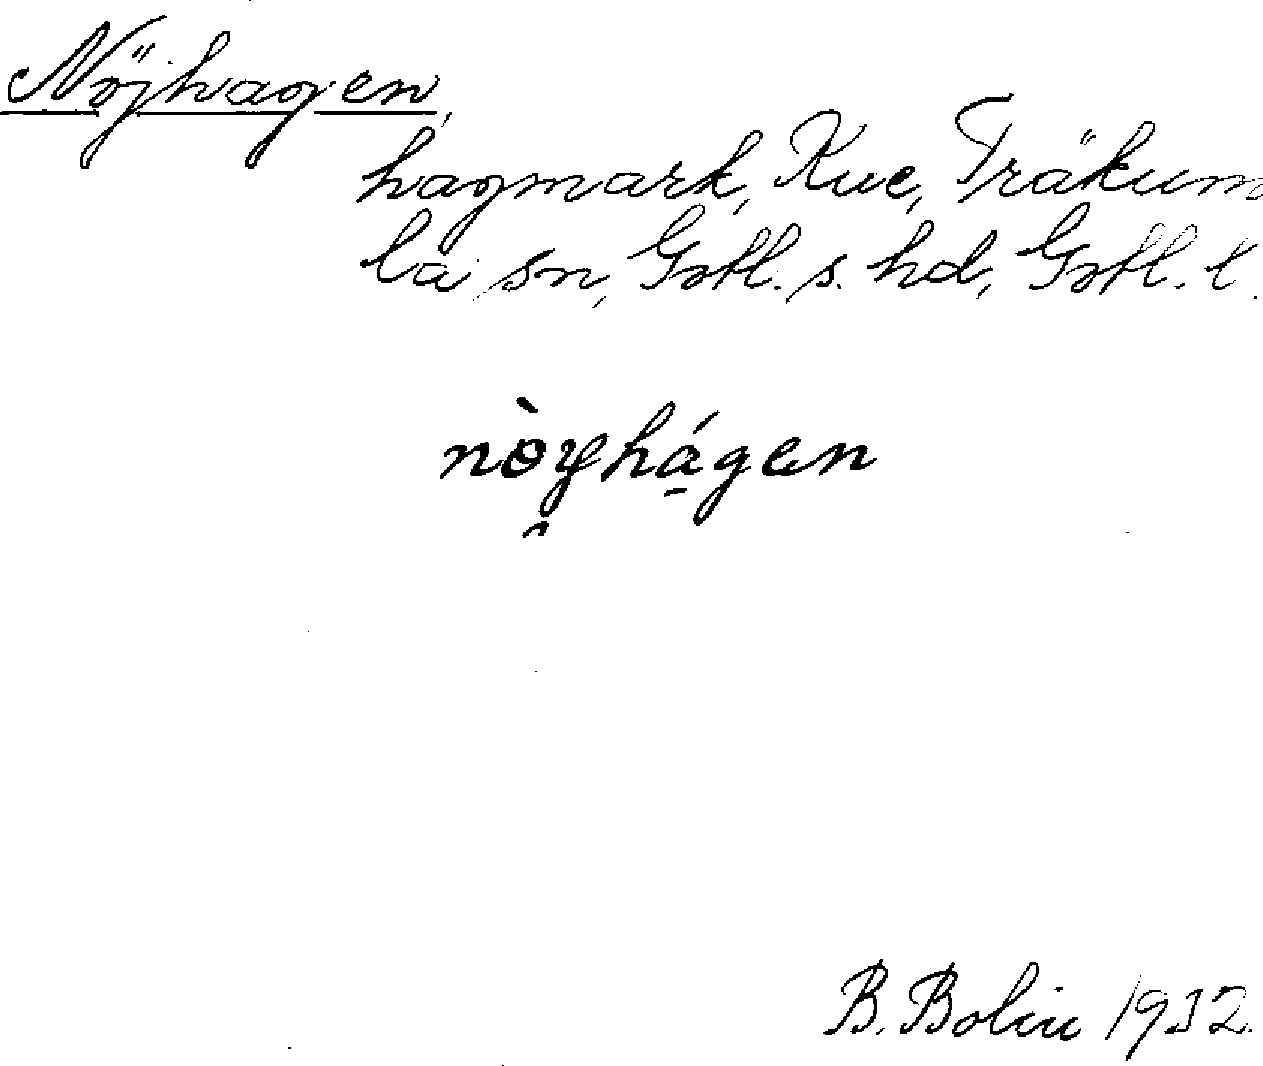 Nöjhagen,
hagmark, Kue, Träkum
la sn, Gotl. s. hd, Gotl. l.
nòyhágen
B. Bolin 1932.